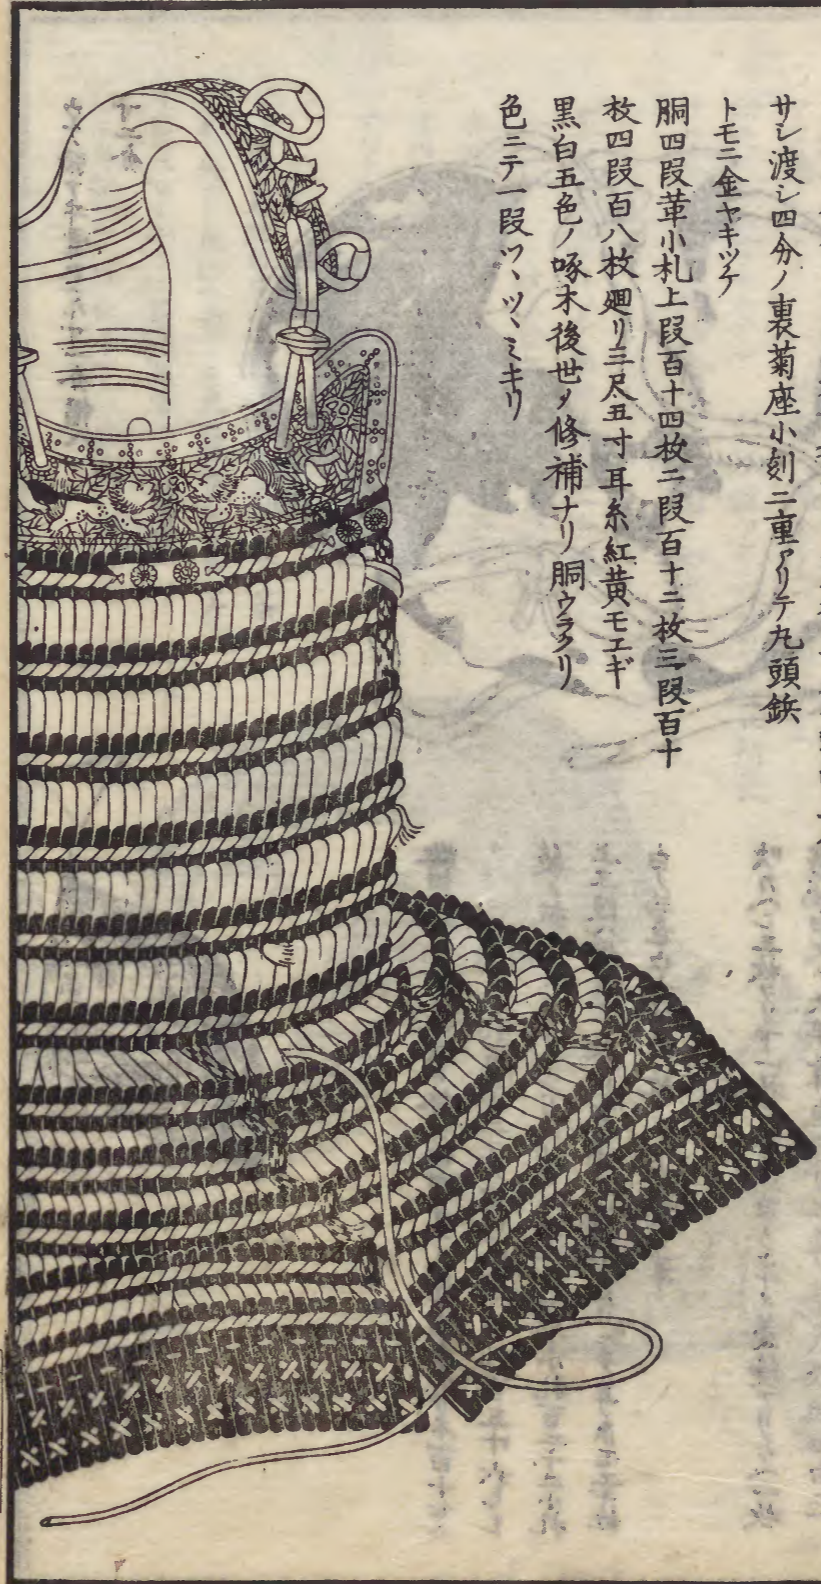 サシ渡シ四分ノ裏菊座小刻二重アリテ丸頭鋲
トモニ金ヤキツケ
胴四段革小札上段百十四枚二段百十二枚三段百十
枚四段百八枚廻リ三尺五寸耳糸紅黄モエギ
黒白五色ノ啄木後世ノ修補ナリ胴ウラクリ
色ニテ一段ツヽツヽミキリ